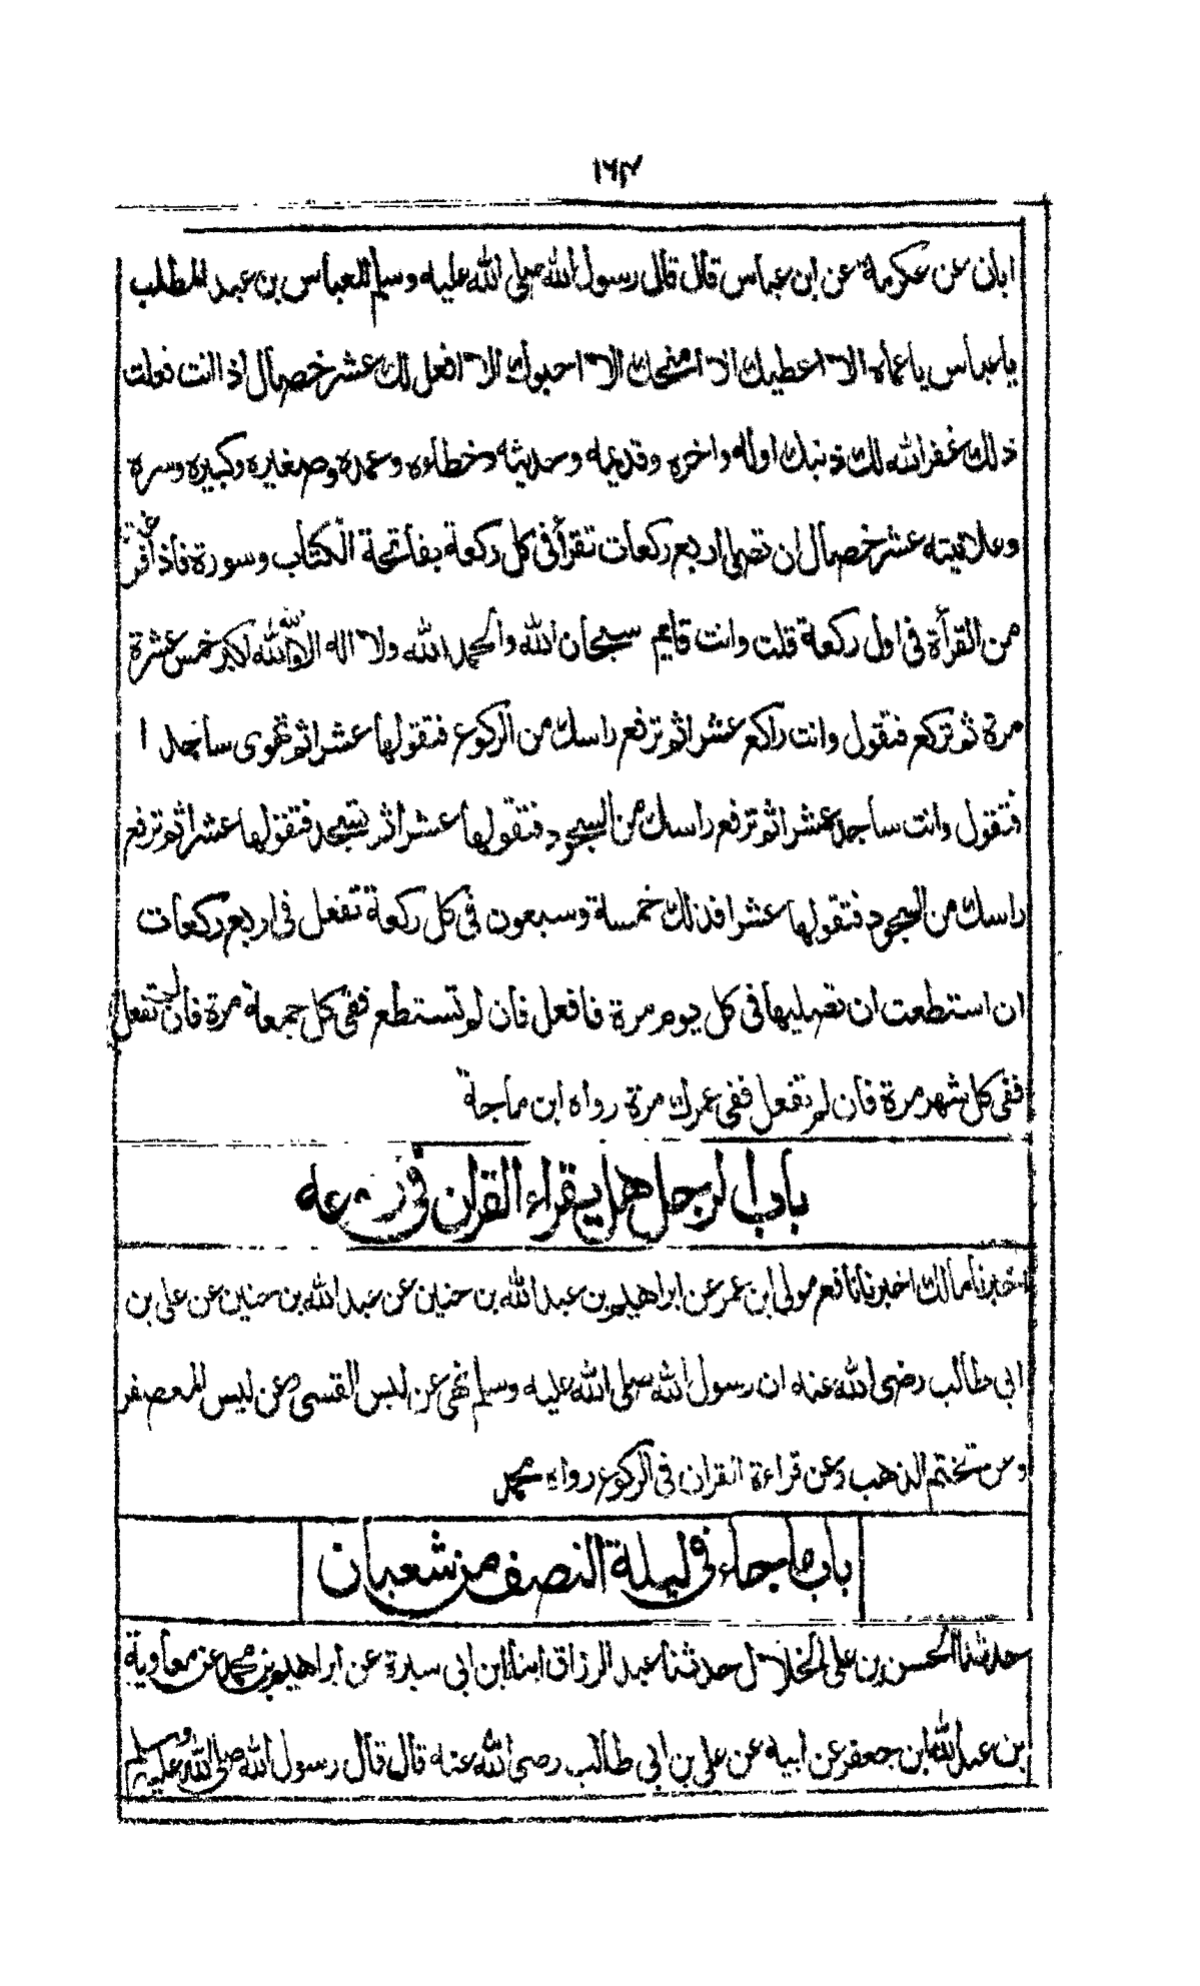 ١٦٣
ابان عن عكرمة عن ابن عباس قال قال رسول الله صلى الله عليه وسلم للعباس بن عبد المطلب
يا عباس يا عماه الا اعطيك الا امنحك الا احبوك الا افعل لك عشر خصال اذا انت فعلت
ذلك غفر الله لك ذنبك اوله واخره وقديمه وحديثه وخطاءه وعمده وصغيره وكبيره وسره
وعلانيته عشر خصال ان تصلى اربع ركعات تقرأ فى كل ركعة بفاتحة الكتاب وسورة فاذا فرغت
من القرأة فى اول ركعة قلت وانت قايم سبحان الله والحمد الله ولا اله الا الله والله اكبر خمس عشرة
مرة ثم تركع فتقول وانت راكع عشرا ثم ترفع راسك من الركوع فتقولها عشرا ثم تهوى ساجدا
فتقول وانت ساجد عشرا ثم ترفع راسك من السجود فتقولها عشرا ثم تسجد فتقولها عشرا ثم ترفع
راسك من السجود فتقولها عشرا فذلك خمسة وسبعون فى كل ركعة تفعل فى اربع ركعات
ان استطعت ان تصليها فى كل يوم مرة فافعل فان لم تستطع ففى كل جمعة مرة فان لم تفعل
ففى كل شهر مرة فان لم تفعل ففى عمرك مرة رواه ابن ماجة
باب الرجل هل يقراء القران فى ركوعه
اخبرنا مالك اخبرنا نافع مولى ابن عمر عن ابراهيم بن عبد الله بن حنين عن عبد الله بن حنين عن على بن
ابى طالب رضى الله عنه ان رسول الله صلى الله عليه وسلم نهى عن لبس القسى وعن لبس المعصفر
وعن تختم الذهب وعن قراءة القران فى الركوع رواه محمد
باب ما جاء فى ليلة النصف من شعبان
حدثنا الحسن بن على الخلال حدثنا عبد الرزاق انبأنا ابن ابى سبرة عن ابراهيم بن محمد عن معاوية
بن عبد الله ابن جعفر عن ابيه عن على بن ابى طالب رضى الله عنه قال قال رسول الله صلى الله عليه وسلم